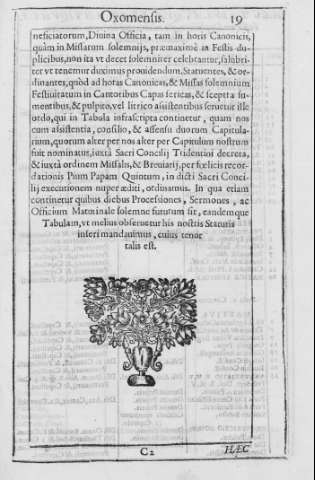 Oxomensis. 19
neficiatorum, Diuina Officia, tam in horis Canonicis,
quàm in Missarum solemnijs, præmaximè in Festis du-
plicibus, non ita vt decet solemniter celebrantur, salubri-
ter vt tenemur duximus prouidendum. Statuentes, & or-
dinantes, quòd ad horas Canonicas, & Missas solemnium
Festiuitatum in Cantoribus Capas sericas, & sceptra su-
mentibus, & pulpito, vel litrico assistentibus seruetur ille
ordo, qui in Tabula infrascripta continetur, quam nos
cum assistentia, consilio, & assensu duorum Capitula-
rium, quorum alter per nos alter per Capitulum nostrum
fuit nominatus, iuxtà Sacri Concilij Tridentini decreta,
& iuxtà ordinem Missalis, & Breuiarij, per fœlicis recor-
dationis Pium Papam Quintum, in dicti Sacri Conci-
lij executionem nuper æditi, ordinauimus. In qua etiam
continetur quibus diebus Processiones, Sermones, ac
Officium Matutinale solemne futurum sit, eandemque
Tabulam, vt melius obseruetur his nostris Statutis
inseri mandauimus, cuius tenor
talis est.
C2 HÆC